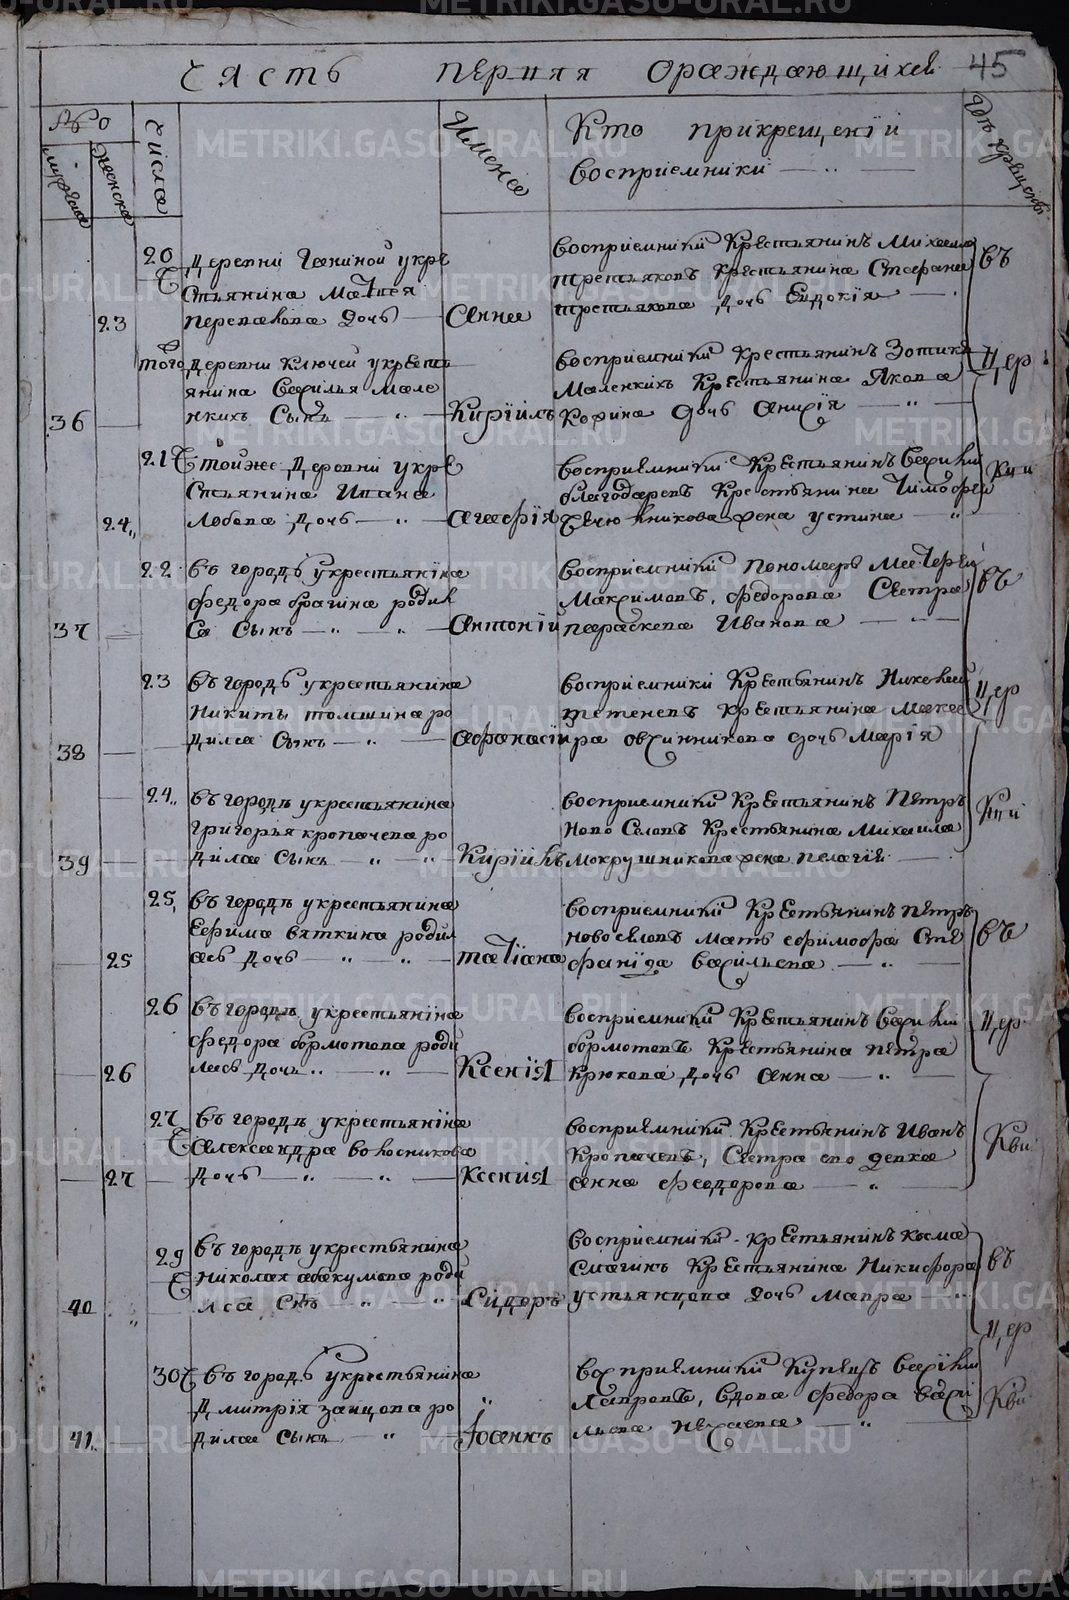 Часть первая Ораждающихся 45
No
мужеска
женска
Числа
Имена
Кто прикрещенїи
восприемники
Где крещены
20 Деревни Ганиной укре
стьянина Матвея
23 перевалова дочь Анна
восприемники Крестьянинъ Михаила
третьяковъ крестьянина Стефана
третьякова дочь Евдокїя
въ
того Деревни Ключей укресть
янина Василья мале
36 нкихъ Сынъ Кирїилъ
восприемники крестьянинъ Зотикъ
маленкихъ крестьянина Якова
дочь
Цер
21 Стойже Деревни укре
стьянина Ивана
24 дочь Агафїя
восприемники Крестьянинъ Василий
благодаревъ Крестьянина Тимофея
жена устина
22 въ городѣ укрестьянїна
федора брагина родил
37 ся Сынъ Антонїй
восприемники пономарь
Максимовъ, федорова Сестра
параскева Иванова
въ
23 въ городѣ укрестьянина
Никиты томшина ро
38 дился Сынъ Афанасїй
восприемники Крестьянинъ
тетеневъ крестьянина Мака
ра овчинникова дочь Марїя
Цер
24 въ городѣ укрестьянина
григорья кропачева ро
39 дился Сынъ Кирїилъ
восприемники Крестьянинъ Петръ
Ново Селовъ Крестьянина Михаила
мокрушникова жена пелагїя
25 въ городѣ укрестьянина
Ефима вяткина родил
25 ась дочь татїана
восприемники Крестьянинъ петръ
новоселовъ Мать ефимофа Сте
фанїда васильева
въ
26 въ городѣ укрестьянїна
федора бормотова роди
26 лась дочь Ксенїя
восприемники Крестьянинъ Василий
бормотовъ Крестьянина петра
Крюкова дочь Анна
Цер
27 въ городѣ укрестьянїна
Александра волосникова
27 дочь Ксения
восприемники Крестьянинъ Иванъ
Кропачевъ, Сестра ево девка
анна феодорова
29 въ городѣ укрестьянина
Николая абакумова роди
40 лся Снъ Сидоръ
восприемники крестьянинъ
Смагинъ Крестьянина Никифора
устьянцова дочь мавра
въ
Цер
30 въ городѣ укрестьянина
Дмитрїя зайцова ро
41 дился Сынъ Їоанъ
восприемники Купецъ Василий
Лавровъ, вдова федора васи
льева